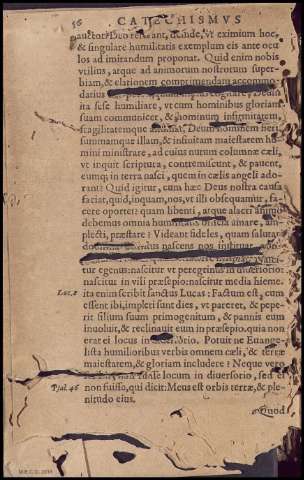 56 CATECHISMVS
auctori Deo referant, deinde, vt eximium hoc,
& singulare humilitatis exemplum eis ante ocu
los ad imirandum proponat. Quid enim nobis
vtilius, atque ad animorum nostrorum super-
biam, & elationem comprimendam accommo-
datius
ita sese humiliare, vt cum hominibus gloriam
suam communicet, & hominum infirmitatem,
fragilitatemque Deum hominem fieri,
summamque illam, & infinitam maiestatem ho
mini ministrare, ad cuius nutum columnæ cæli,
vt inquit scriptura, contremiscunt, & pauent,
eumq; in terra nasci, quem in cælis angeli ado-
rant? Quid igitur, cum hæc Deus nostra causa
faciat, quid, inquam, nos, vt illi obsequamur, fa-
cere oportet? quam libenti, atque alacri animo
debemus omnia humilitatis officia amare, am-
plecti, præstare? Videant fideles, quam salutari
nascens nos instruat,
Nasci-
tur egenus: nascitur vt peregrinus in diuersorio:
nascitur in vili præsepio: nascitur media hieme.
Luc. 2 ita enim scribit sanctus Lucas: Factum est, cum
essent ibi, impleti sunt dies, vt pareret, & pepe-
rit filium suum primogenitum, & pannis eum
inuoluit, & reclinauit eum in præsepio. quia non
erat ei locus in diuersorio. Potuit ne Euange-
lista humilioribus verbis omnem cæli, & terræ
maiestatem, & gloriam includere? Neque vero
locum in diuersorio, sed ei
Psal. 46 non fuisse, qui dicit: Meus est orbis terræ, & ple-
nitudo eius.
Quod